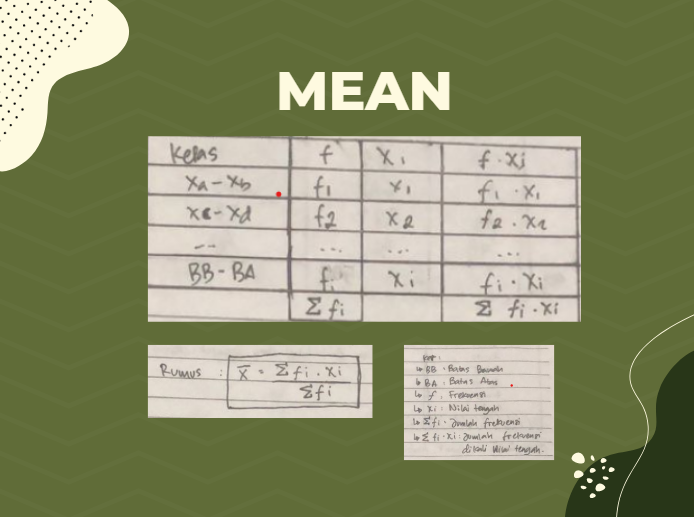 MEAN
Kelas f Xi f · Xi
Xa - Xb f1 X1 f1 · X1
Xc - Xd f2 X2 f2 · X2
... ... ... ...
BB - BA fi Xi fi · Xi
Σ fi Σ fi · Xi
Rumus : X̄ = Σ fi · Xi
Σ fi
Ket :
↳ BB : Batas Bawah
↳ BA : Batas Atas
↳ f : Frekuensi
↳ Xi : Nilai tengah
↳ Σ fi : Jumlah frekuensi
↳ Σ fi · Xi : Jumlah frekuensi
dikali Nilai tengah.